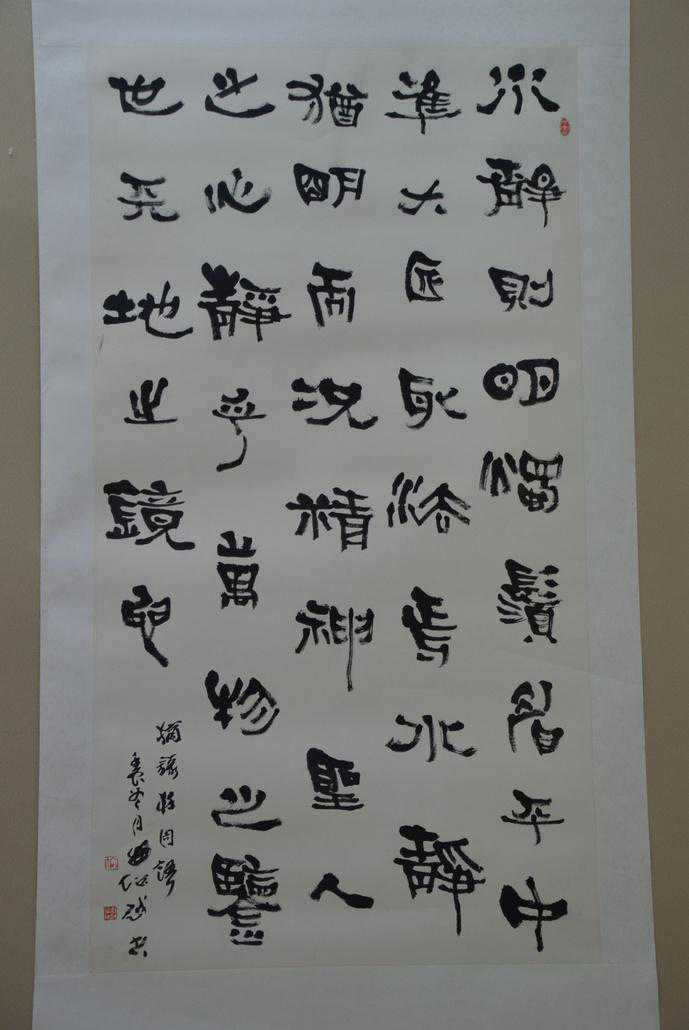 水靜則明燭鬚眉平中
準大匠取法焉水靜
猶明而況精神聖人
之心靜乎萬物之鑒
也天地之鏡也
摘錄莊周語
冬月